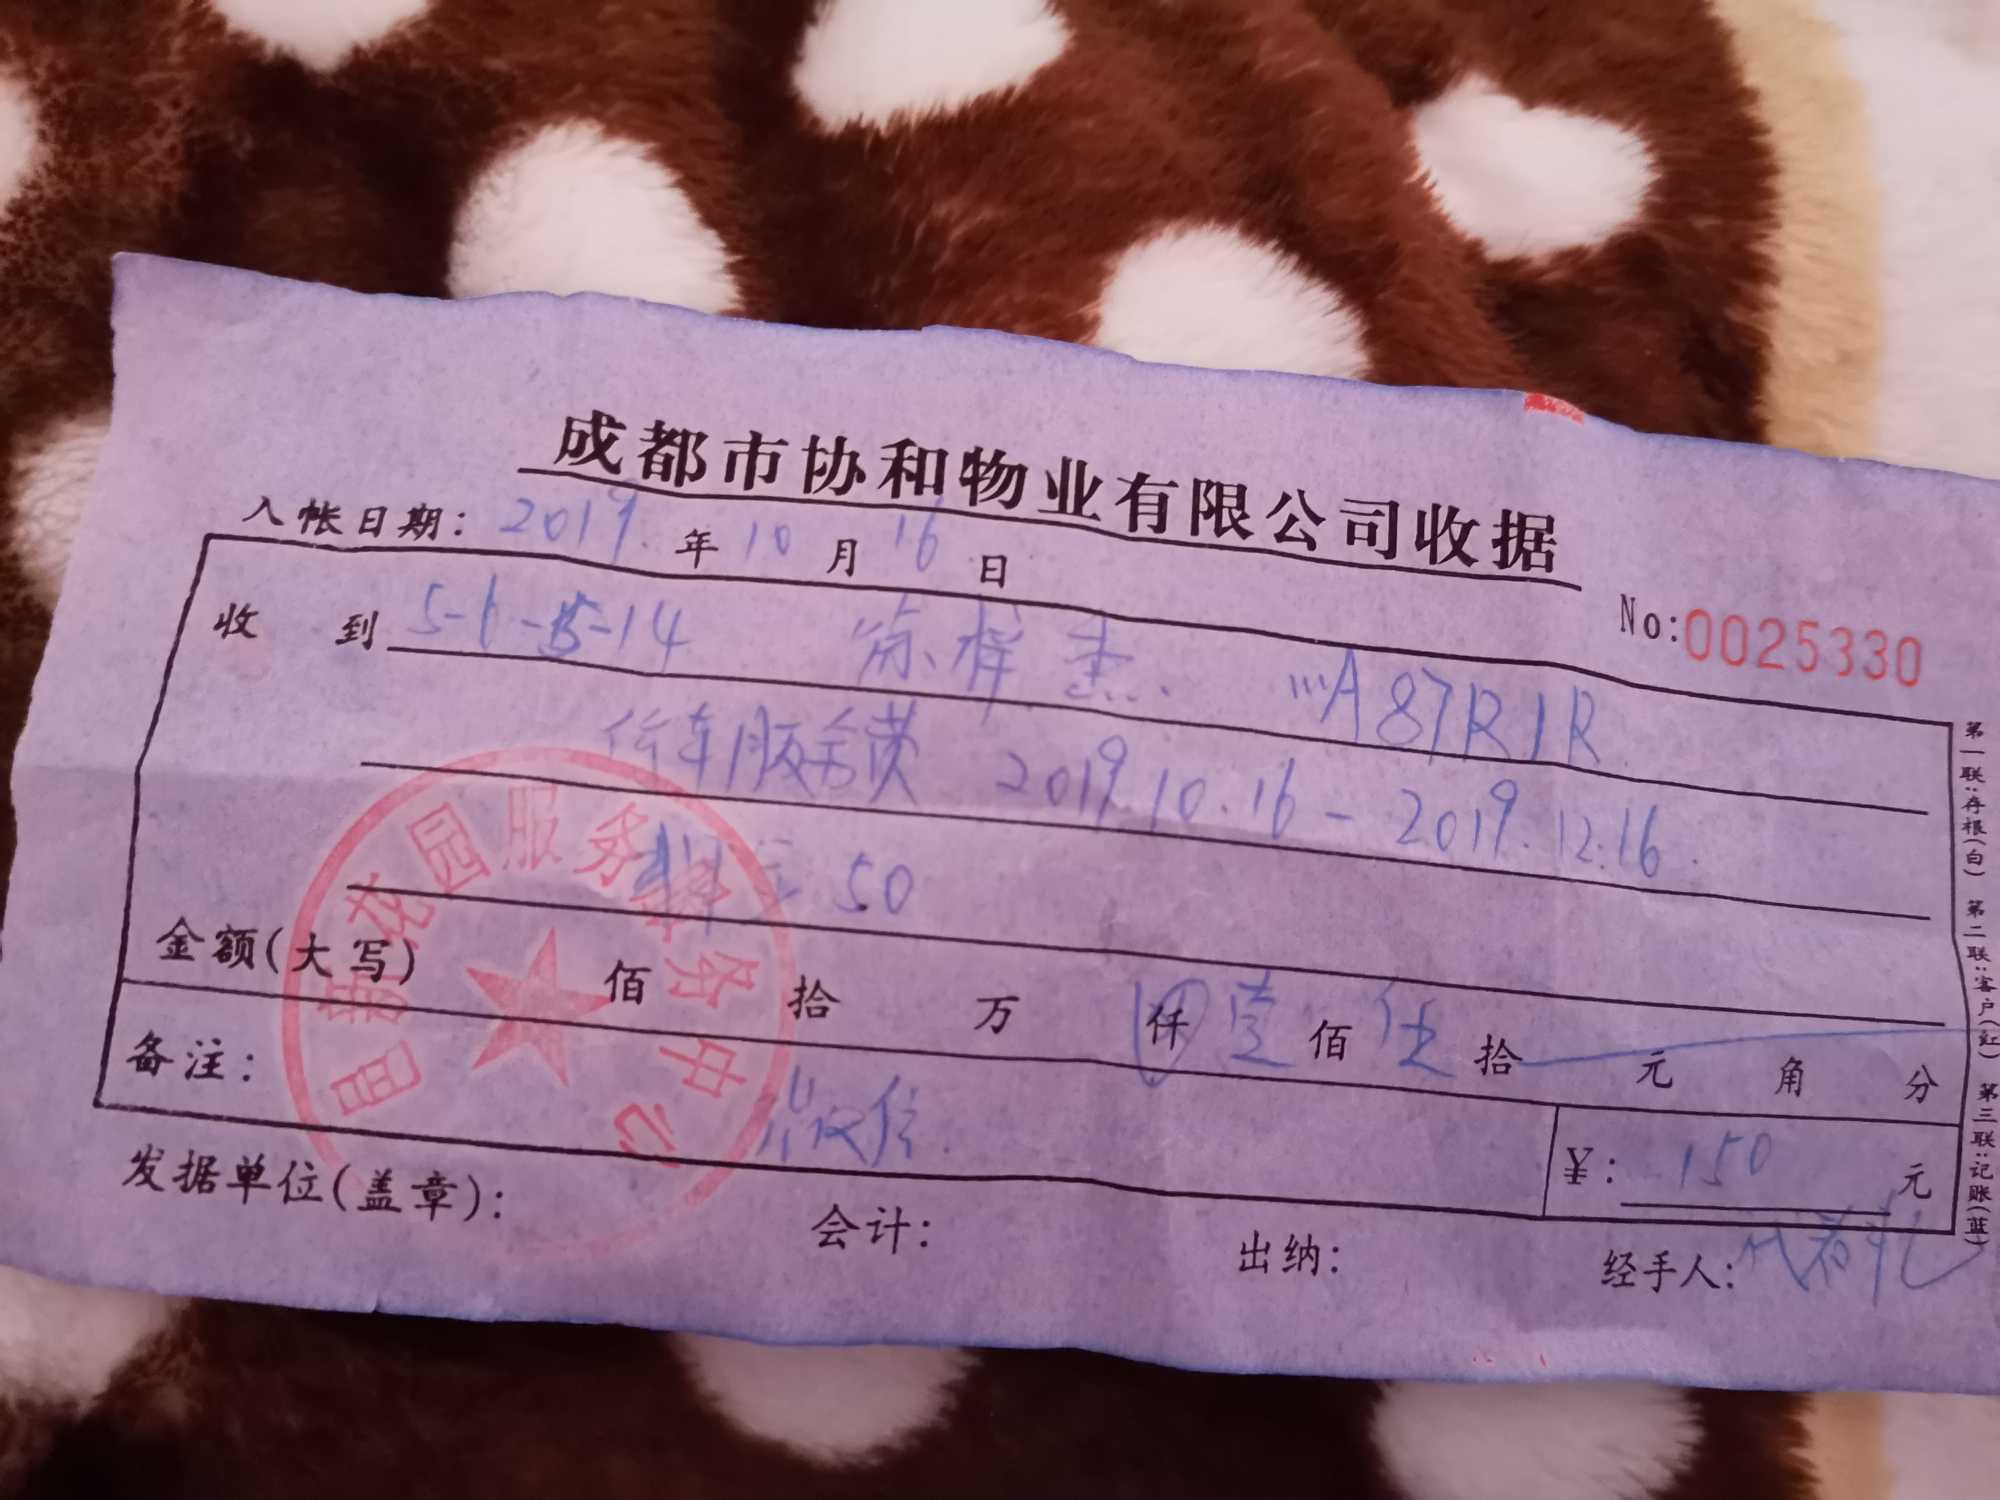 成都市协和物业有限公司收据
入帐日期: 2019 年 10 月 16 日
No:0025330
收 到 5-1-5-14 川A87R1R
停车服务费 2019.10.16-2019.12.16.
50
金额(大写) 佰 拾 万 仟 壹 佰 伍 拾 元 角 分
备注: 微信
¥: 150 元
发据单位(盖章): 会计: 出纳: 经手人:
花园服务 服务中心
第一联:存根(白) 第二联:客户(红) 第三联:记账(蓝)